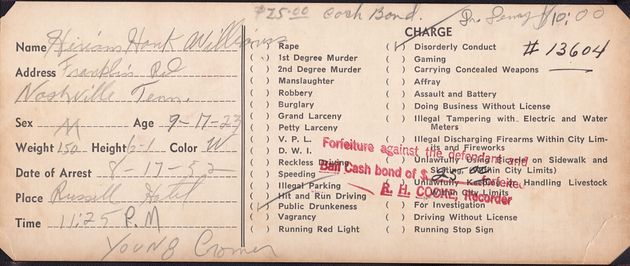 $25.00 Cash Bond. $10:00
# 13604
CHARGE
Name Hiriam Hank Williams
Address Franklin Rd
Nashville Tenn.
Sex M Age 9-17-23
Weight 150 Height 6-1 Color W
Date of Arrest 8-17-52
Place Russell Hotel
Time 11:25 P.M
Young Cromer
( ) Rape
( ) 1st Degree Murder
( ) 2nd Degree Murder
( ) Manslaughter
( ) Robbery
( ) Burglary
( ) Grand Larceny
( ) Petty Larceny
( ) V. P. L.
( ) D. W. I.
( ) Reckless Driving
( ) Speeding
( ) Illegal Parking
( ) Hit and Run Driving
( ) Public Drunkeness
( ) Vagrancy
( ) Running Red Light
( ) Disorderly Conduct
( ) Gaming
( ) Carrying Concealed Weapons
( ) Affray
( ) Assault and Battery
( ) Doing Business Without License
( ) Illegal Tampering with Electric and Water
Meters
( ) Illegal Discharging Firearms Within City Lim-
its and Fireworks
( ) Unlawfully Using Bicycle on Sidewalk and
Skating (Within City Limits)
( ) Unlawfully Keeping or Handling Livestock
Within City Limits
( ) For Investigation
( ) Driving Without License
( ) Running Stop Sign
Forfeiture against the defendant and
Bail Cash bond of $ 25.00
E. H. COOKE, Recorder